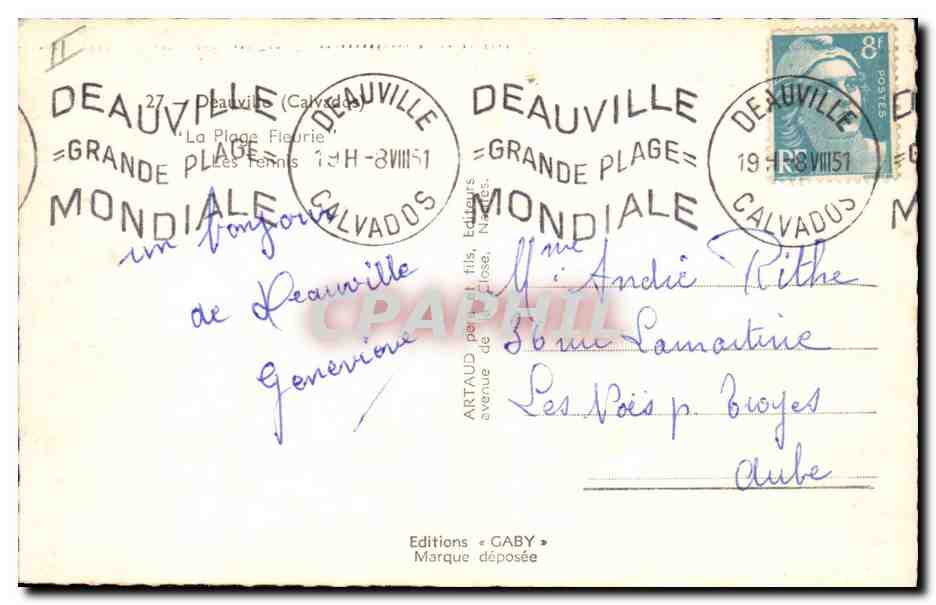 27 - Deauville (Calvados)
La Plage Fleurie
Les Tennis
DEAUVILLE
=GRANDE PLAGE=
MONDIALE
DEAUVILLE
19H-8VIII51
CALVADOS
DEAUVILLE
=GRANDE PLAGE=
MONDIALE
DEAUVILLE
19H-8VIII51
CALVADOS
8F
POSTES
RF
un bonjour
de Deauville
Geneviève
ARTAUD père et fils, Editeurs
avenue de la Close, Nantes.
Mme André Rithe
36 rue Lamartine
Les Noës p. Troyes
Aube
CPAPHIL
Editions « GABY »
Marque déposée